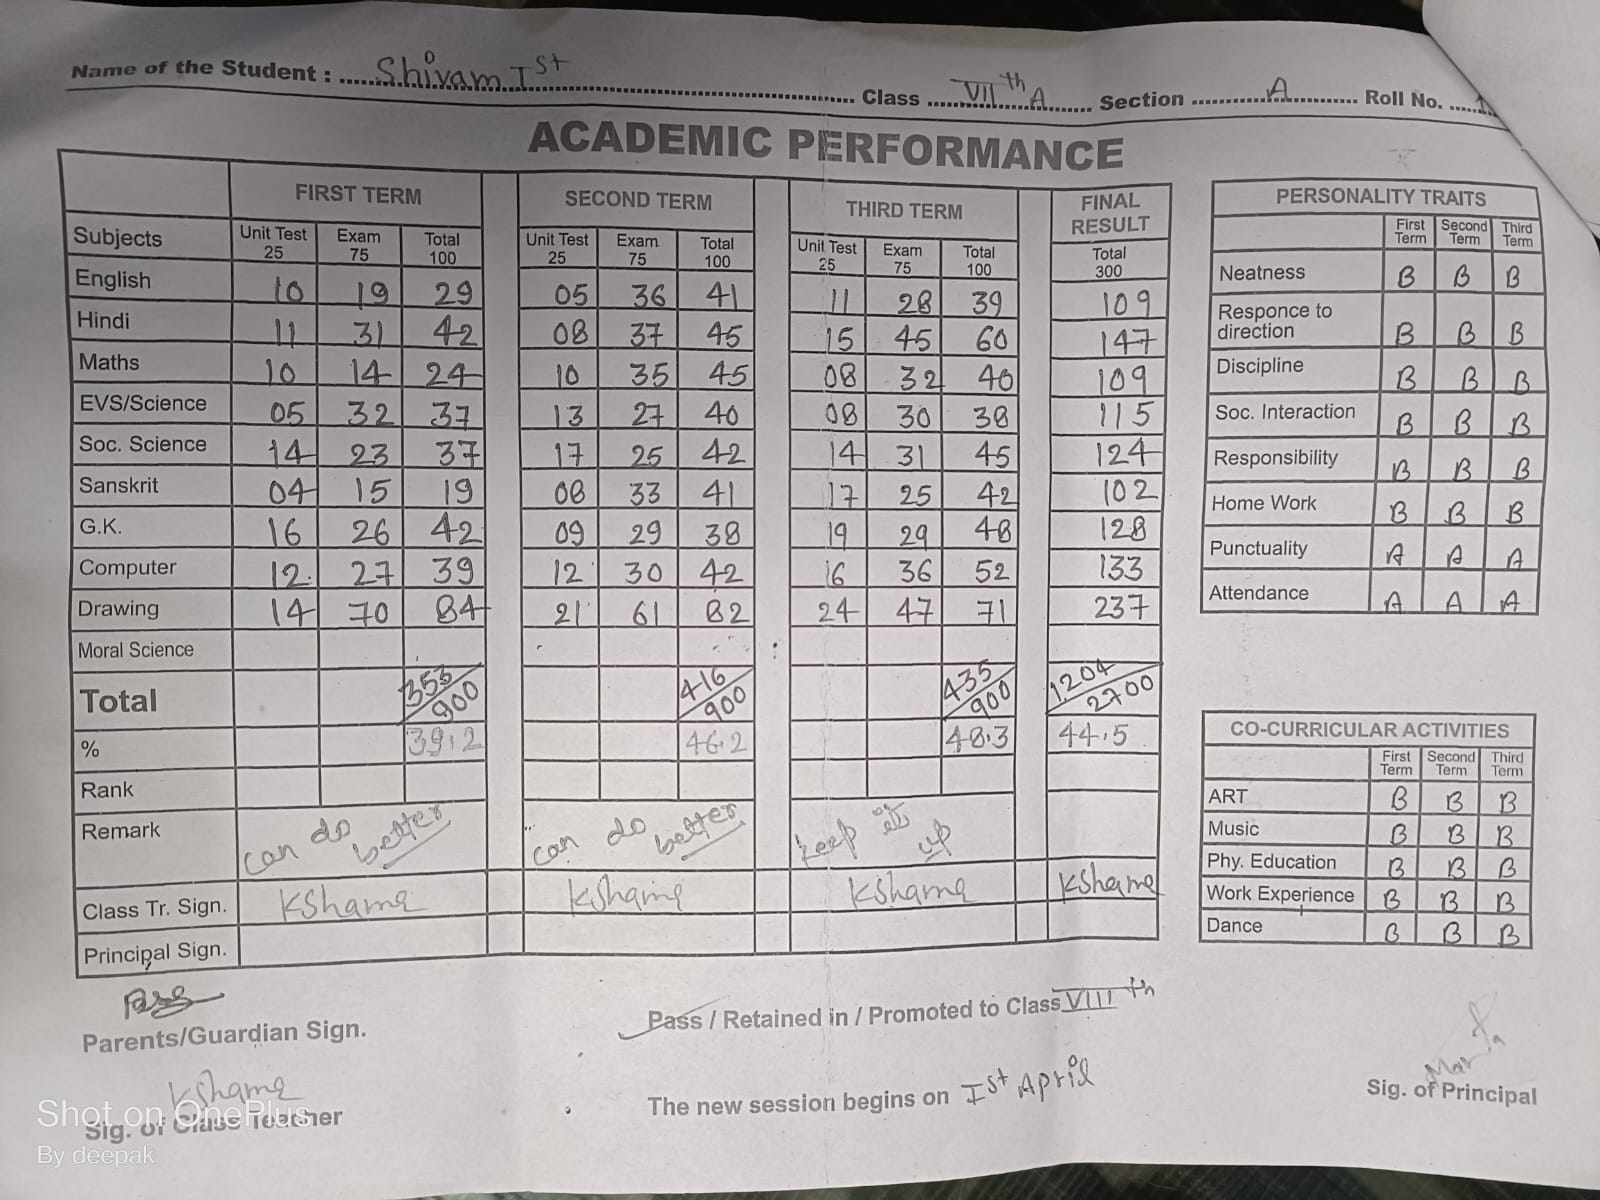 Name of the Student : Shivam Ist Class VIIth A Section A Roll No. 1
ACADEMIC PERFORMANCE
FIRST TERM SECOND TERM THIRD TERM FINAL RESULT
Subjects Unit Test 25 Exam 75 Total 100 Unit Test 25 Exam 75 Total 100 Unit Test 25 Exam 75 Total 100 Total 300
English 10 19 29 05 36 41 11 28 39 109
Hindi 11 31 42 08 37 45 15 45 60 147
Maths 10 14 24 10 35 45 08 32 40 109
EVS/Science 05 32 37 13 27 40 08 30 38 115
Soc. Science 14 23 37 17 25 42 14 31 45 124
Sanskrit 04 15 19 08 33 41 17 25 42 102
G.K. 16 26 42 09 29 38 19 29 48 128
Computer 12 27 39 12 30 42 16 36 52 133
Drawing 14 70 84 21 61 82 24 47 71 237
Moral Science
Total 353/900 416/900 435/900 1204/2700
% 39.2 46.2 48.3 44.5
Rank
Remark can do better can do better keep it up
Class Tr. Sign. Kshama Kshama Kshama Kshama
Principal Sign.
PERSONALITY TRAITS
First Term Second Term Third Term
Neatness B B B
Responce to direction B B B
Discipline B B B
Soc. Interaction B B B
Responsibility B B B
Home Work B B B
Punctuality A A A
Attendance A A A
CO-CURRICULAR ACTIVITIES
First Term Second Term Third Term
ART B B B
Music B B B
Phy. Education B B B
Work Experience B B B
Dance B B B
Parents/Guardian Sign.
Pass / Retained in / Promoted to Class VIIIth
Kshama
Sig. of Class Teacher
The new session begins on Ist April
Sig. of Principal
Shot on OnePlus
By deepak